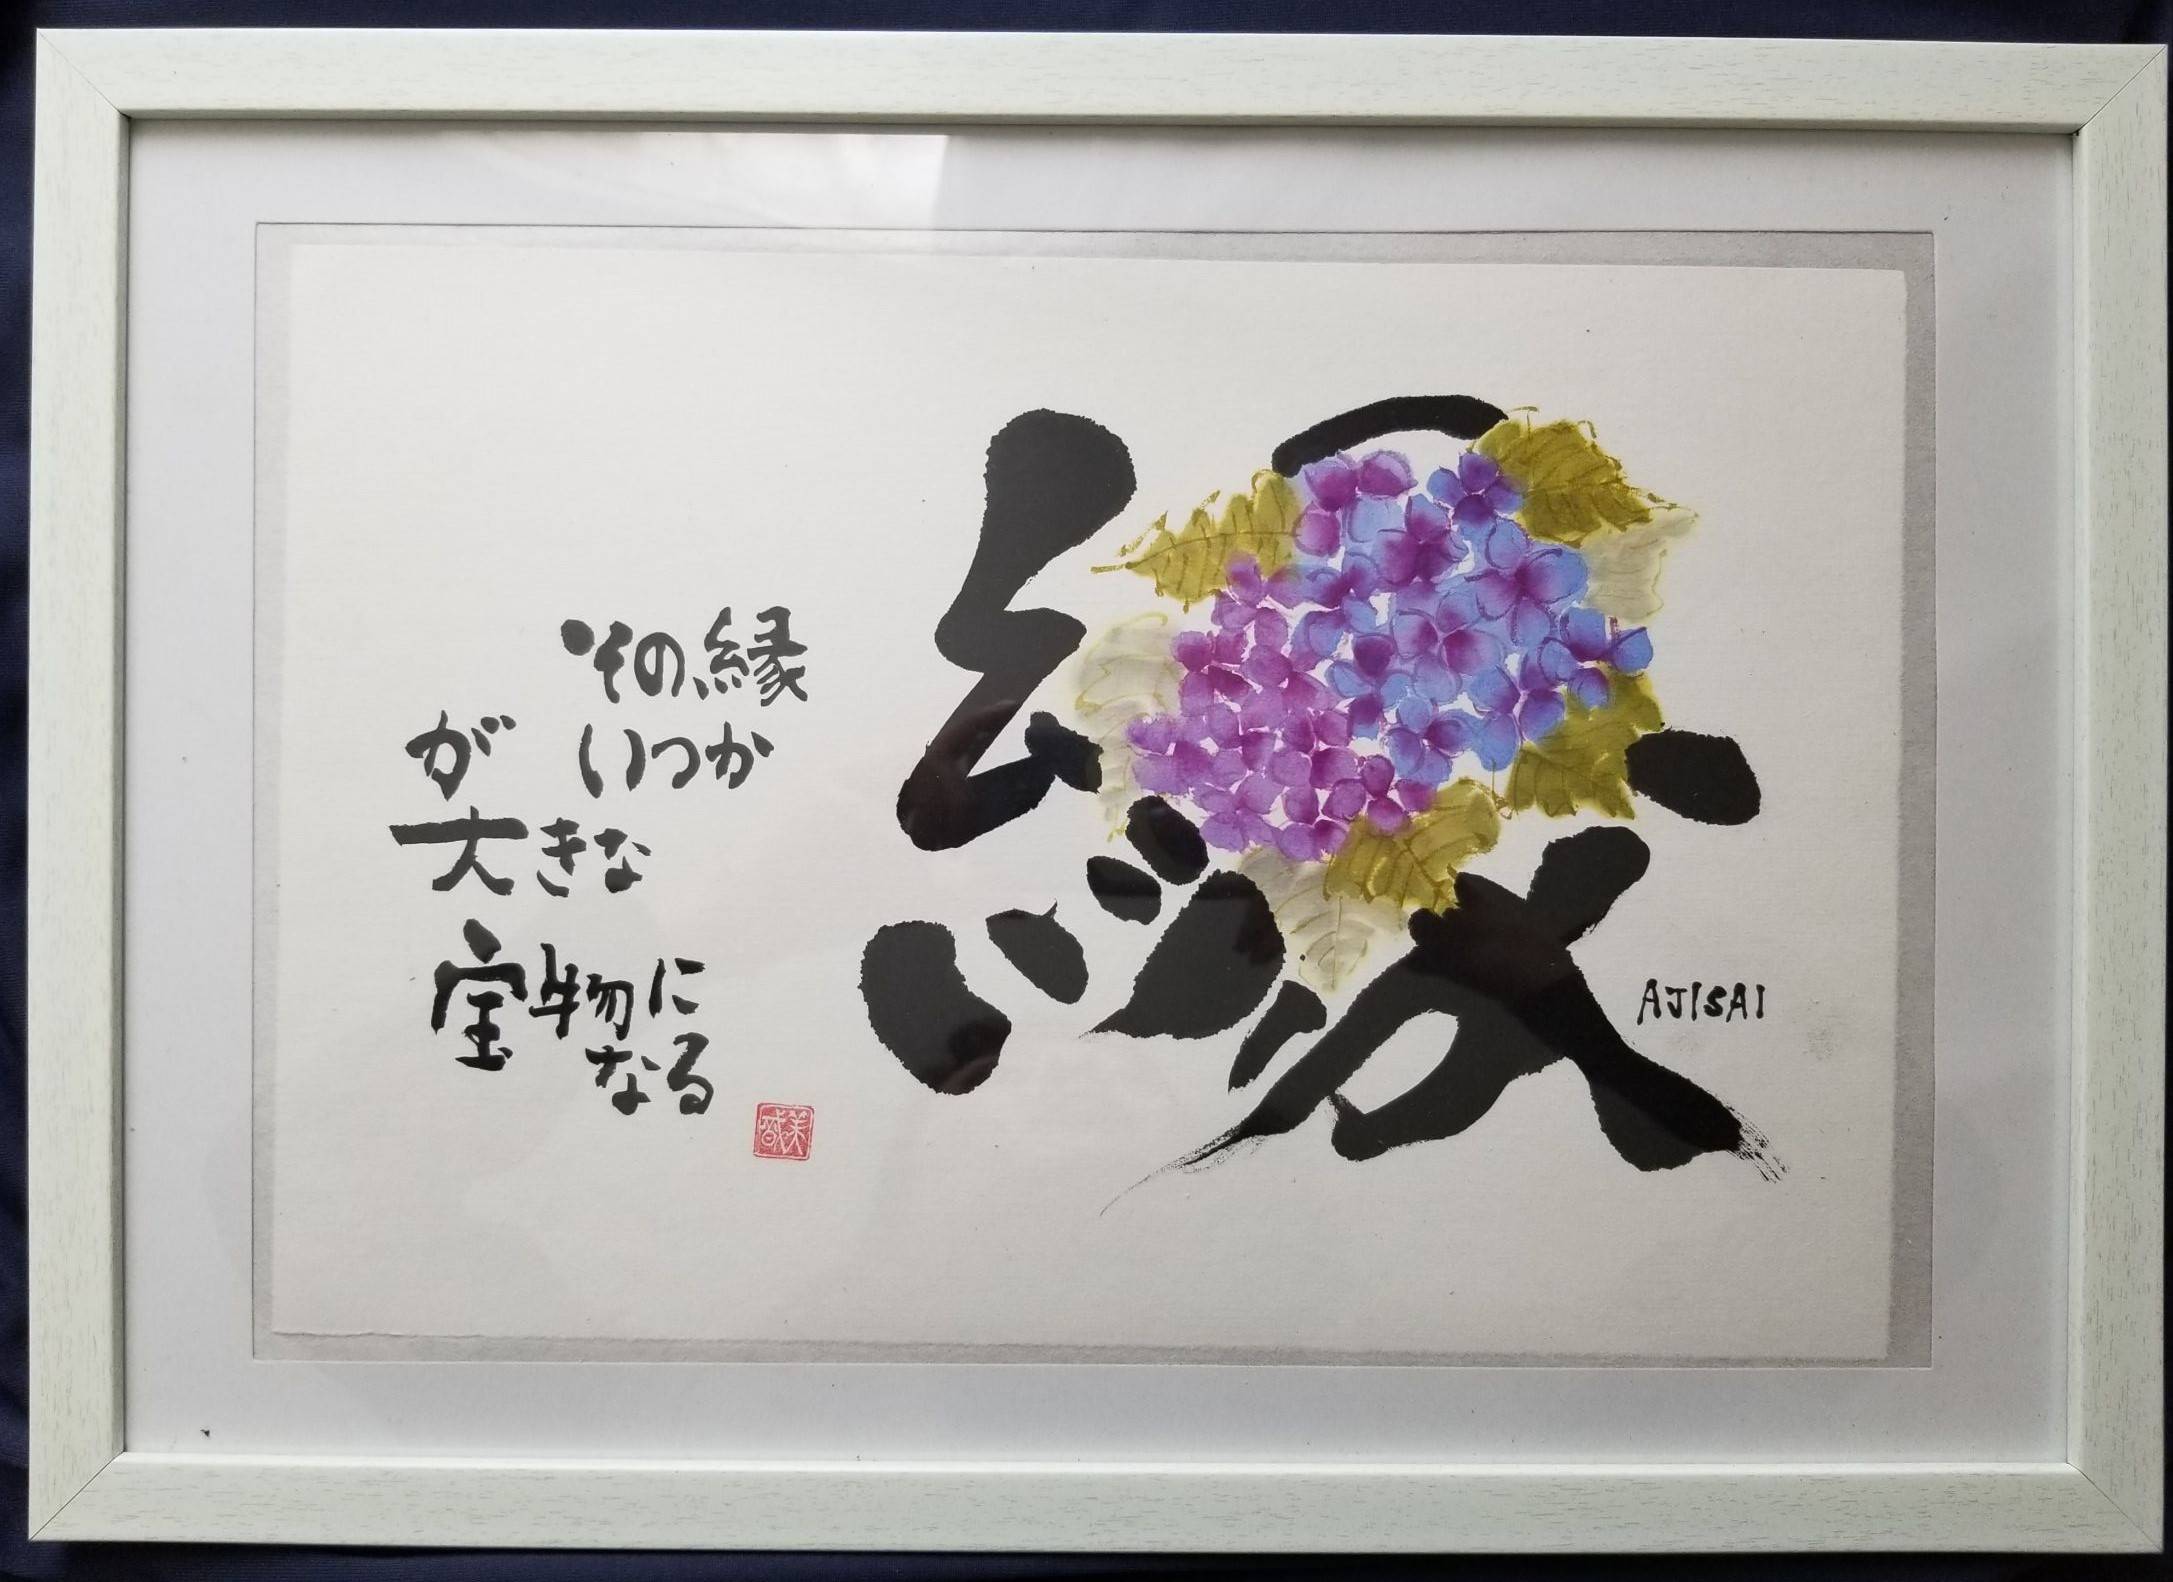 縁
その縁
が いつか
大きな
宝物に
なる
AJISAI